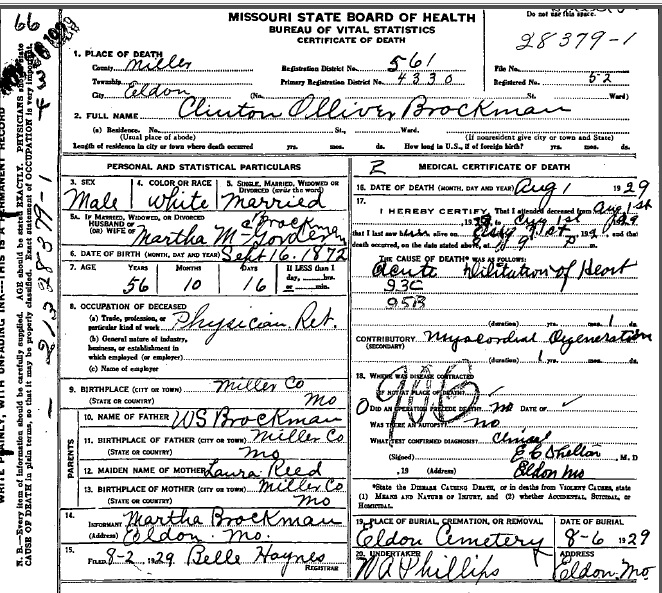 66
MISSOURI STATE BOARD OF HEALTH
BUREAU OF VITAL STATISTICS
CERTIFICATE OF DEATH
Do not use this space.
28379-1
1. PLACE OF DEATH
County Miller
Registration District No. 561
File No.
Township
Primary Registration District No. 4330
Registered No. 52
City Eldon (No. St. Ward)
2. FULL NAME Clinton Olliver Brockman
(a) Residence. No. St., Ward.
(Usual place of abode) (If nonresident give city or town and State)
Length of residence in city or town where death occurred yrs. mos. ds. How long in U.S., if of foreign birth? yrs. mos. ds.
PERSONAL AND STATISTICAL PARTICULARS
3. SEX Male
4. COLOR OR RACE White
5. SINGLE, MARRIED, WIDOWED OR DIVORCED (write the word) Married
5A. IF MARRIED, WIDOWED, OR DIVORCED
HUSBAND OF
(OR) WIFE OF Martha M
6. DATE OF BIRTH (MONTH, DAY AND YEAR) Sept 16. 1872
7. AGE YEARS 56 MONTHS 10 DAYS 16 If LESS than 1 day, hrs. or min.
8. OCCUPATION OF DECEASED
(a) Trade, profession, or particular kind of work Physician Ret.
(b) General nature of industry, business, or establishment in which employed (or employer)
(c) Name of employer
9. BIRTHPLACE (CITY OR TOWN) Miller Co
(STATE OR COUNTRY) Mo
PARENTS
10. NAME OF FATHER WS Brockman
11. BIRTHPLACE OF FATHER (CITY OR TOWN) Miller Co
(STATE OR COUNTRY) Mo
12. MAIDEN NAME OF MOTHER Laura Reed
13. BIRTHPLACE OF MOTHER (CITY OR TOWN) Miller Co
(STATE OR COUNTRY) Mo
14.
INFORMANT Martha Brockman
(Address) Eldon Mo.
15.
FILED 8-2, 1929 Belle Haynes
REGISTRAR
2
MEDICAL CERTIFICATE OF DEATH
16. DATE OF DEATH (MONTH, DAY AND YEAR) Aug 1 1929
17.
I HEREBY CERTIFY, That I attended deceased from Aug 1st
, 19 , to Aug 1st 1929
that I last saw alive on 1st, 19 , and that
death occurred, on the date stated above, at m.
THE CAUSE OF DEATH* WAS AS FOLLOWS:
Acute Dilitation of Heart
93C
95B
(duration) yrs. mos. 1 ds.
CONTRIBUTORY Myocordial Degeneration
(SECONDARY)
(duration) 1 yrs. mos. ds.
90B
18. WHERE WAS DISEASE CONTRACTED
IF NOT AT PLACE OF DEATH?
DID AN OPERATION PRECEDE DEATH? no DATE OF
WAS THERE AN AUTOPSY? no
WHAT TEST CONFIRMED DIAGNOSIS? Clinical
(Signed) E C Shelton, M. D
, 19 (Address) Eldon Mo
*State the DISEASE CAUSING DEATH, or in deaths from VIOLENT CAUSES, state
(1) MEANS AND NATURE OF INJURY, and (2) whether ACCIDENTAL, SUICIDAL, or
HOMICIDAL.
19. PLACE OF BURIAL, CREMATION, OR REMOVAL Eldon Cemetery
DATE OF BURIAL 8-6 1929
20. UNDERTAKER WA Phillips
ADDRESS Eldon Mo
WRITE PLAINLY, WITH UNFADING INK---THIS IS A PERMANENT RECORD
N. B.—Every item of information should be carefully supplied. AGE should be stated EXACTLY. PHYSICIANS should state
CAUSE OF DEATH in plain terms, so that it may be properly classified. Exact statement of OCCUPATION is very important.